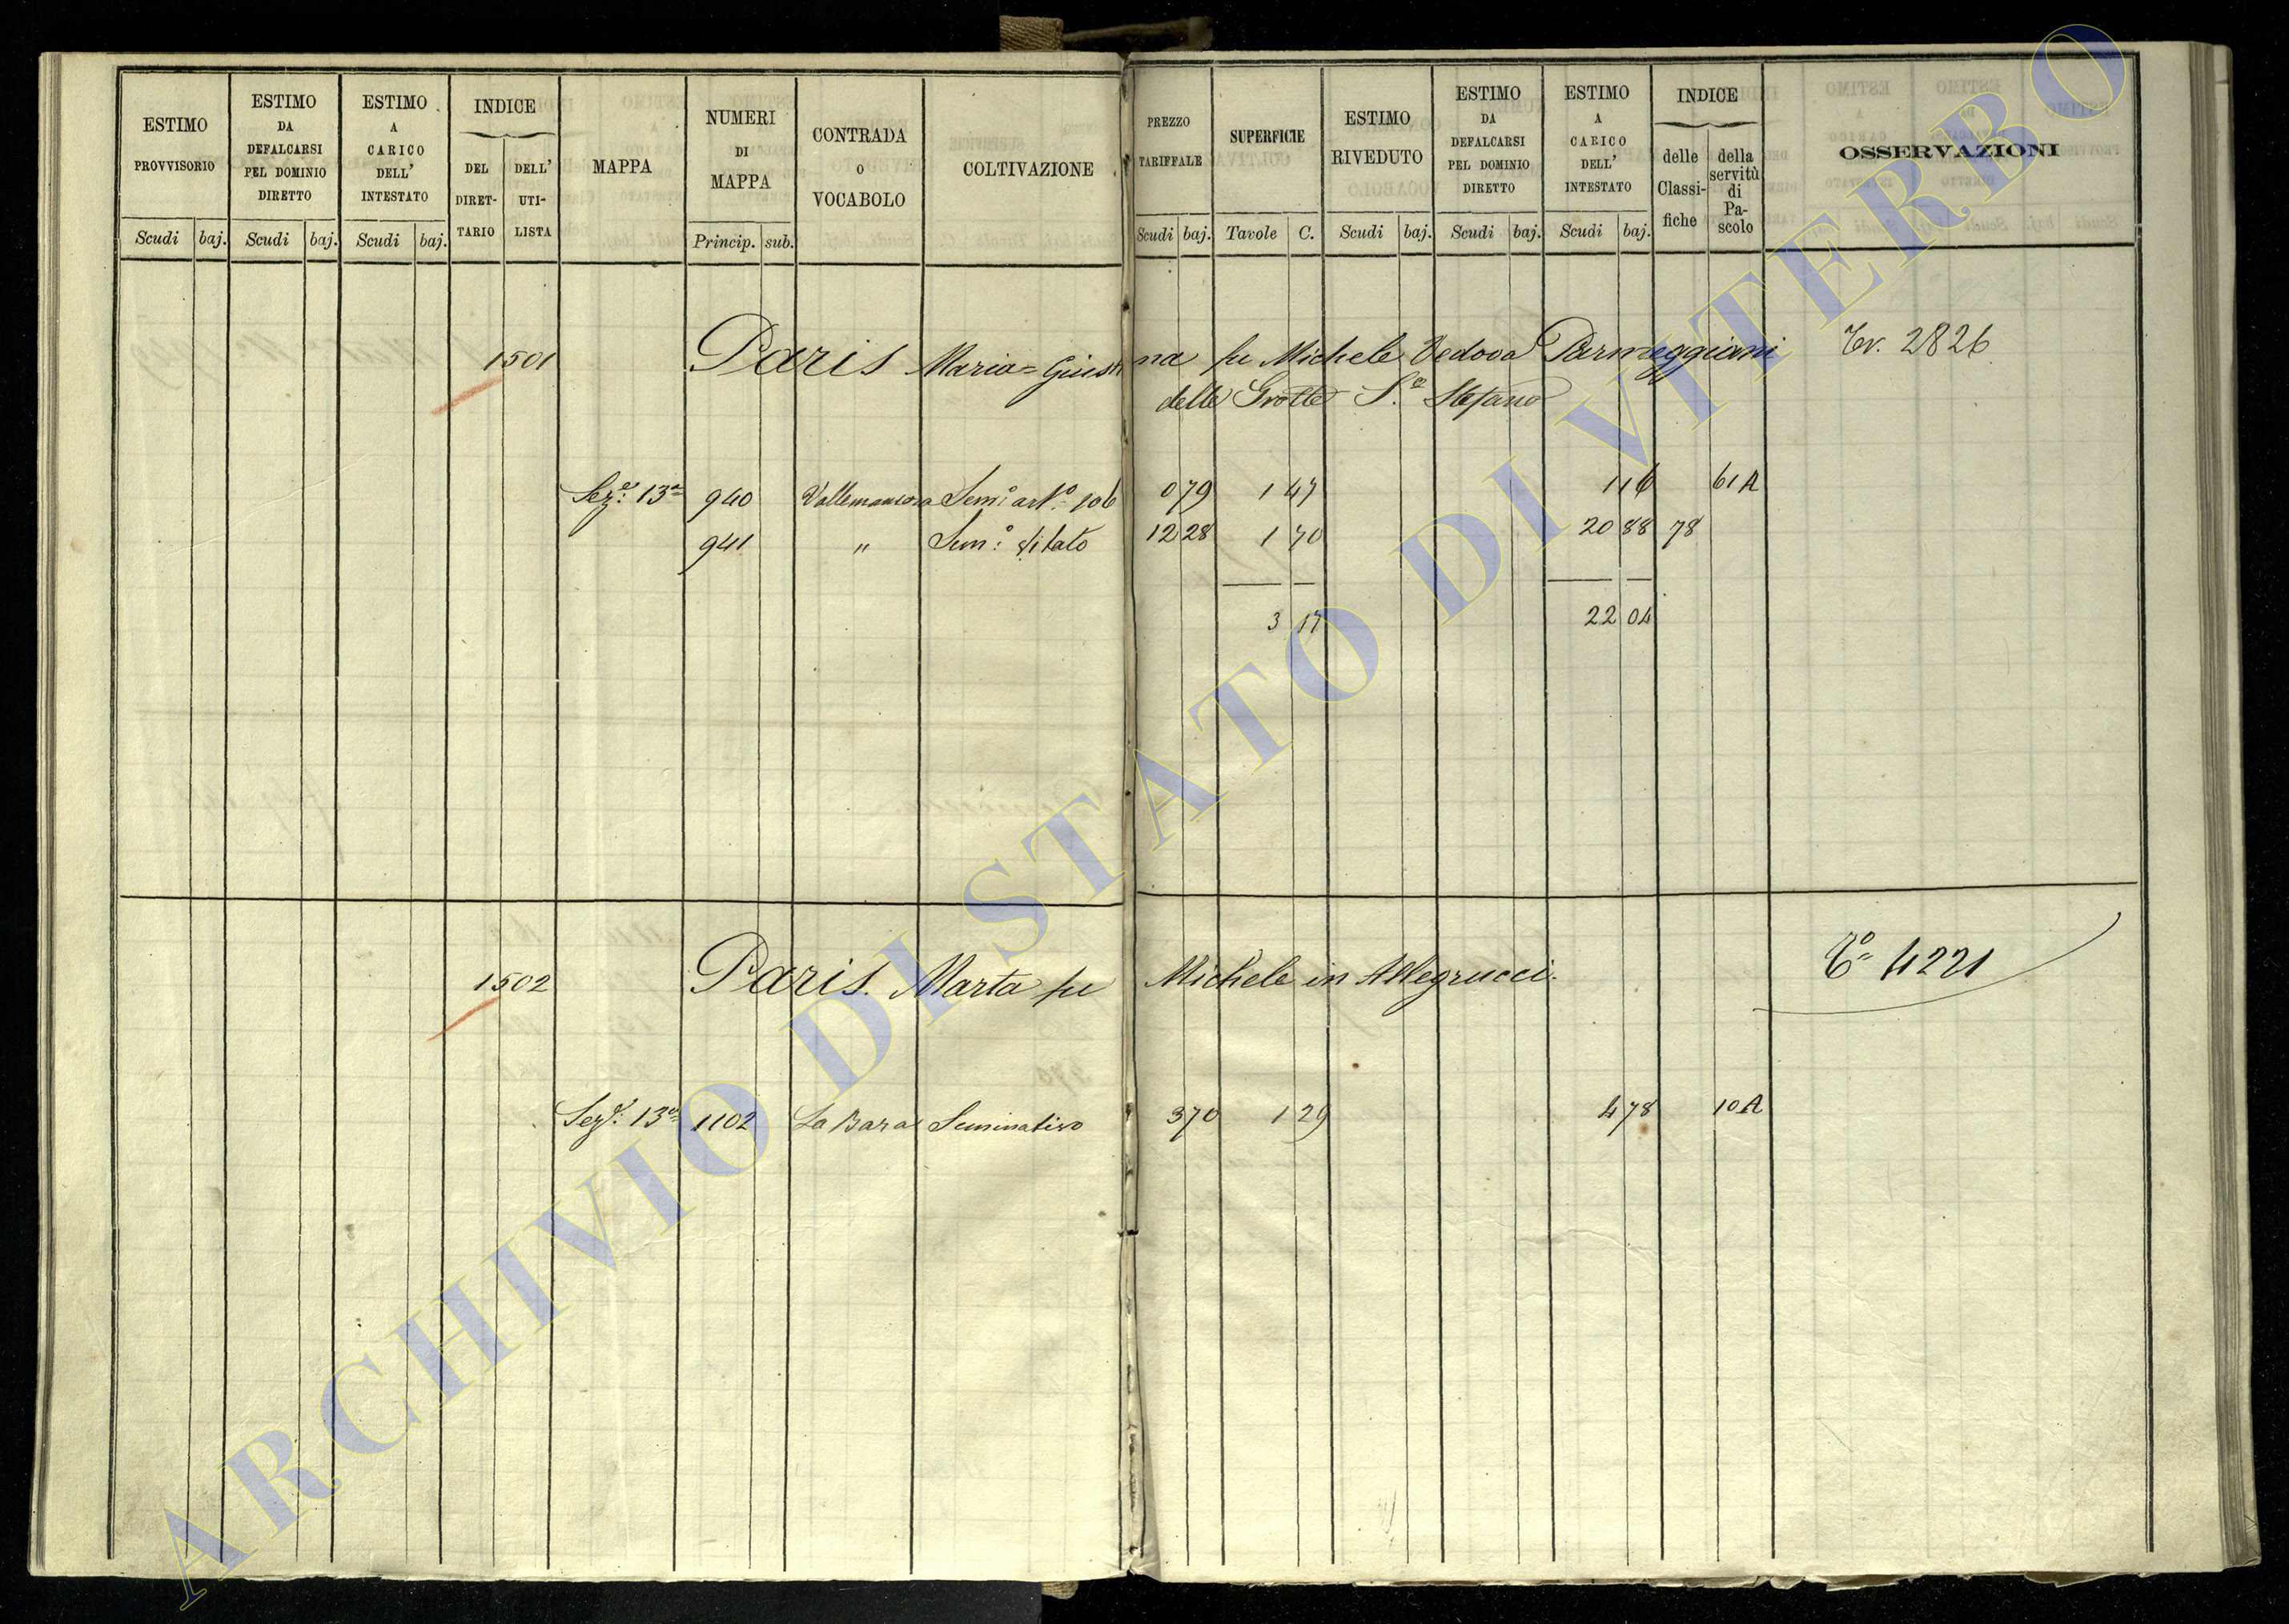 ESTIMO PROVVISORIO
Scudi baj.
ESTIMO DA DEFALCARSI PEL DOMINIO DIRETTO
Scudi baj.
ESTIMO A CARICO DELL' INTESTATO
Scudi baj.
INDICE
DEL DIRET-TARIO
DELL' UTI-LISTA
MAPPA
NUMERI DI MAPPA
Princip. sub.
CONTRADA o VOCABOLO
COLTIVAZIONE
PREZZO TARIFFALE
Scudi baj.
SUPERFICIE
Tavole C.
ESTIMO RIVEDUTO
Scudi baj.
ESTIMO DA DEFALCARSI PEL DOMINIO DIRETTO
Scudi baj.
ESTIMO A CARICO DELL' INTESTATO
Scudi baj.
INDICE
delle Classi-fiche
della servitù di Pa-scolo
OSSERVAZIONI
1501 Paris Maria=Giustina fu Michele Vedova Parmeggiani Tr. 2826
delle Grotte S.o Stefano
Sez.e 13a 940 Sem.o art.o 106 0 79 1 47 1 16 61 A
941 " Sem.o vitato 12 28 1 70 20 88 78
3 17 22 04
1502 Paris Marta fu Michele in Allegrucci. To 4221
Sez.e 13a 1102 La Bara Seminativo 3 70 1 29 4 78 10 A
ARCHIVIO DI STATO DI VITERBO